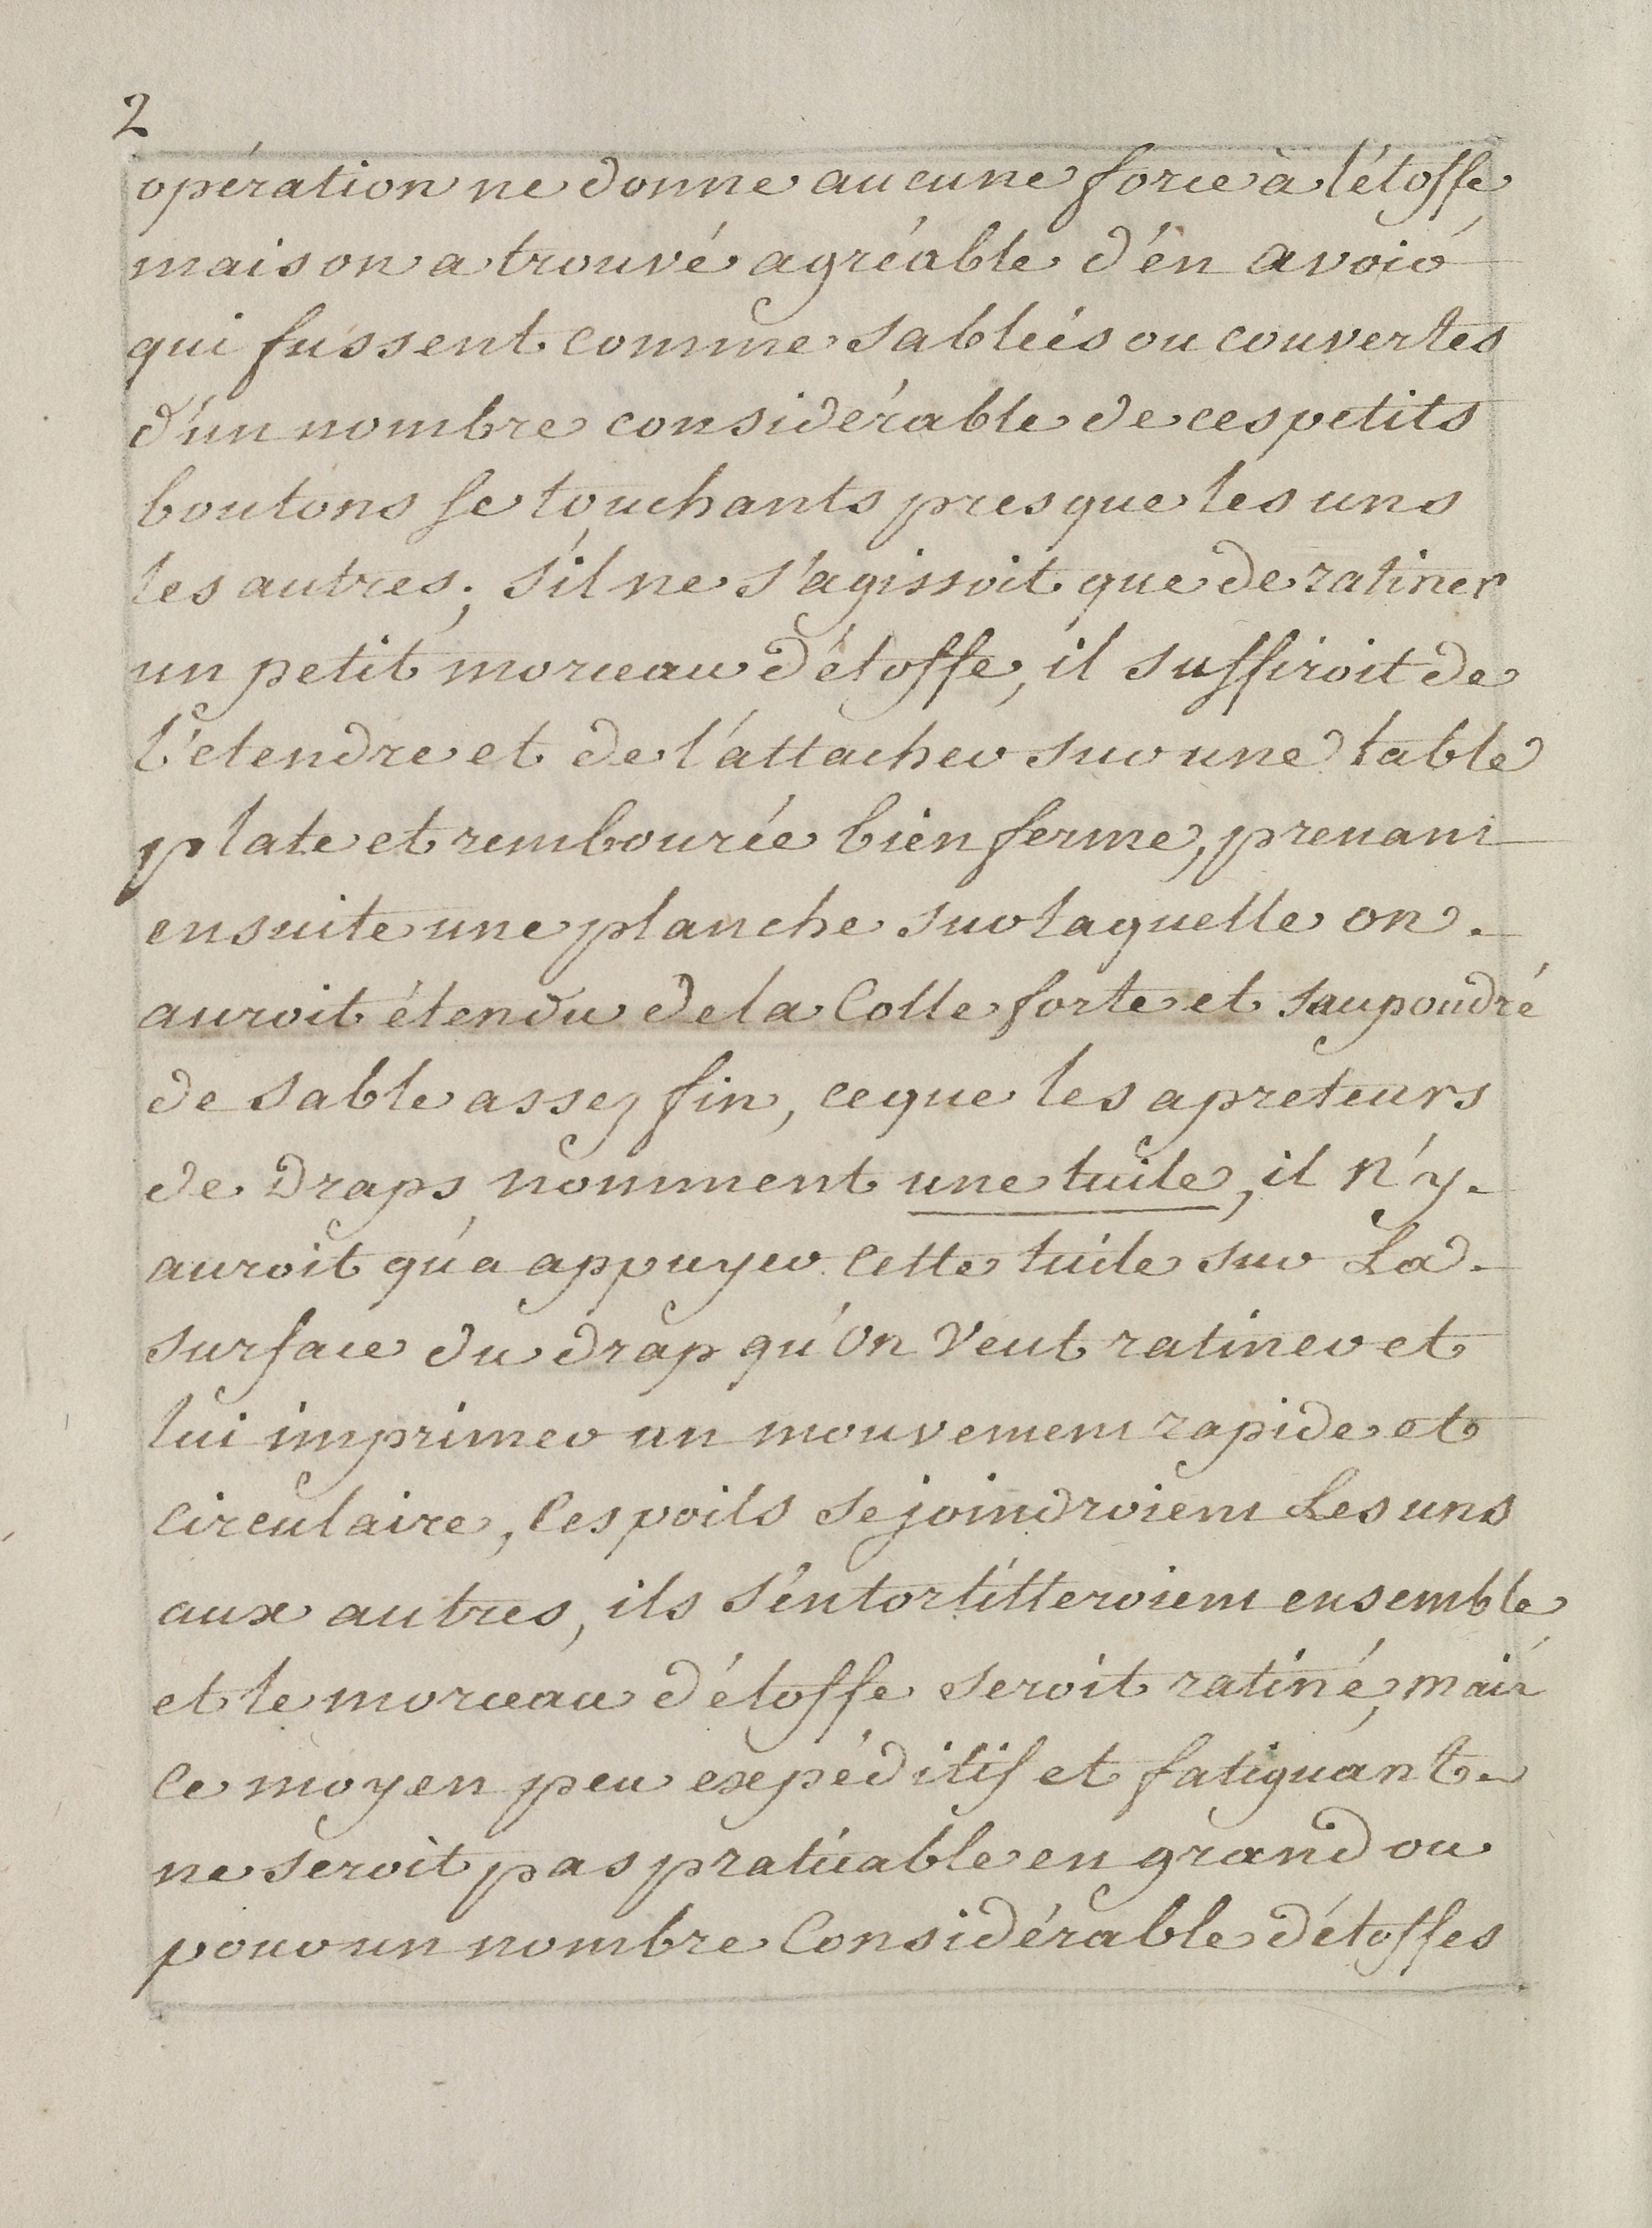 2
opération ne donne aucune force à l'étoffe
mais on a trouvé agréable d'en avoir
qui fussent comme sablées ou couvertes
d'un nombre considérable de ces petits
boutons se touchants presque les uns
les autres; s'il ne s'agissoit que de ratiner
un petit morceau d'étoffe, il suffiroit de
l'etendre et de l'attacher sur une table
plate et rembourée bien ferme, prenant
ensuite une planche sur laquelle on
auroit étendu de la Colle forte et saupoudré
de sable assez fin, ce que les apreteurs
de Draps nomment une tuile, il n'y
auroit qu'a appuyer cette tuile sur La
surface du drap qu'on Veut ratiner et
lui imprimer un mouvement rapide et
circulaire, les poils se joindroient Les uns
aux autres, ils s'entortilleroient ensemble
et le morceau d'étoffe seroit ratiné, mais
ce moyen peu expéditif et fatiguant
ne seroit pas praticable en grand ou
pour un nombre Considérable d'étoffes